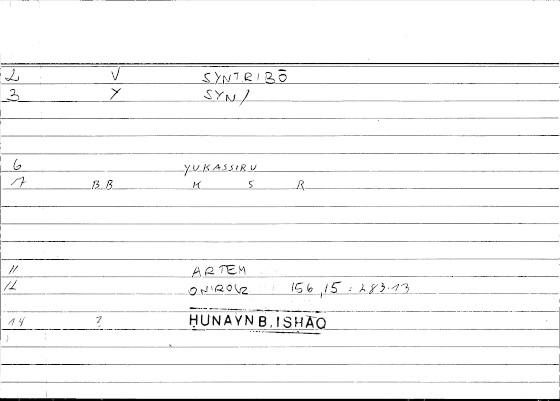 2 V SYNTRIBŌ
3 Y SYN/
6 YUKASSIRU
7 BB K S R
11 ARTEM
12 ONIROCR 156,15 : 283.13
14 ? HUNAYN B. ISHAQ